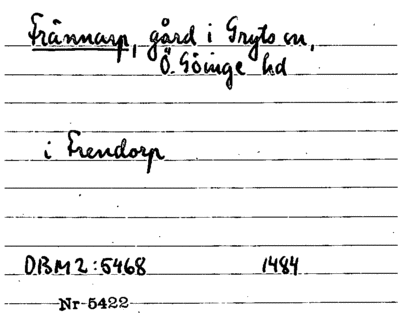 Frännarp, gård i Gryts sn,
Ö. Göinge hd
i Frendorp
DBM 2:5468 1484
Nr 5422